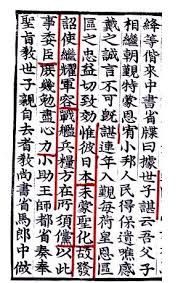 絳等偕來中書省牒曰據世子諶云吾父子
相繼朝覲特蒙恩宥小邦人民得保遺噍感
戴之誠言不可旣諶連年入覲每荷皇恩區
區之忠益切致効惟彼日本未蒙聖化故發
詔使繼耀軍容戰艦兵糧方在所須儻以此
事委臣庶幾勉盡心力小助王師都省奏奉
聖旨敎世子親自去者敎尙書省馬郎中做